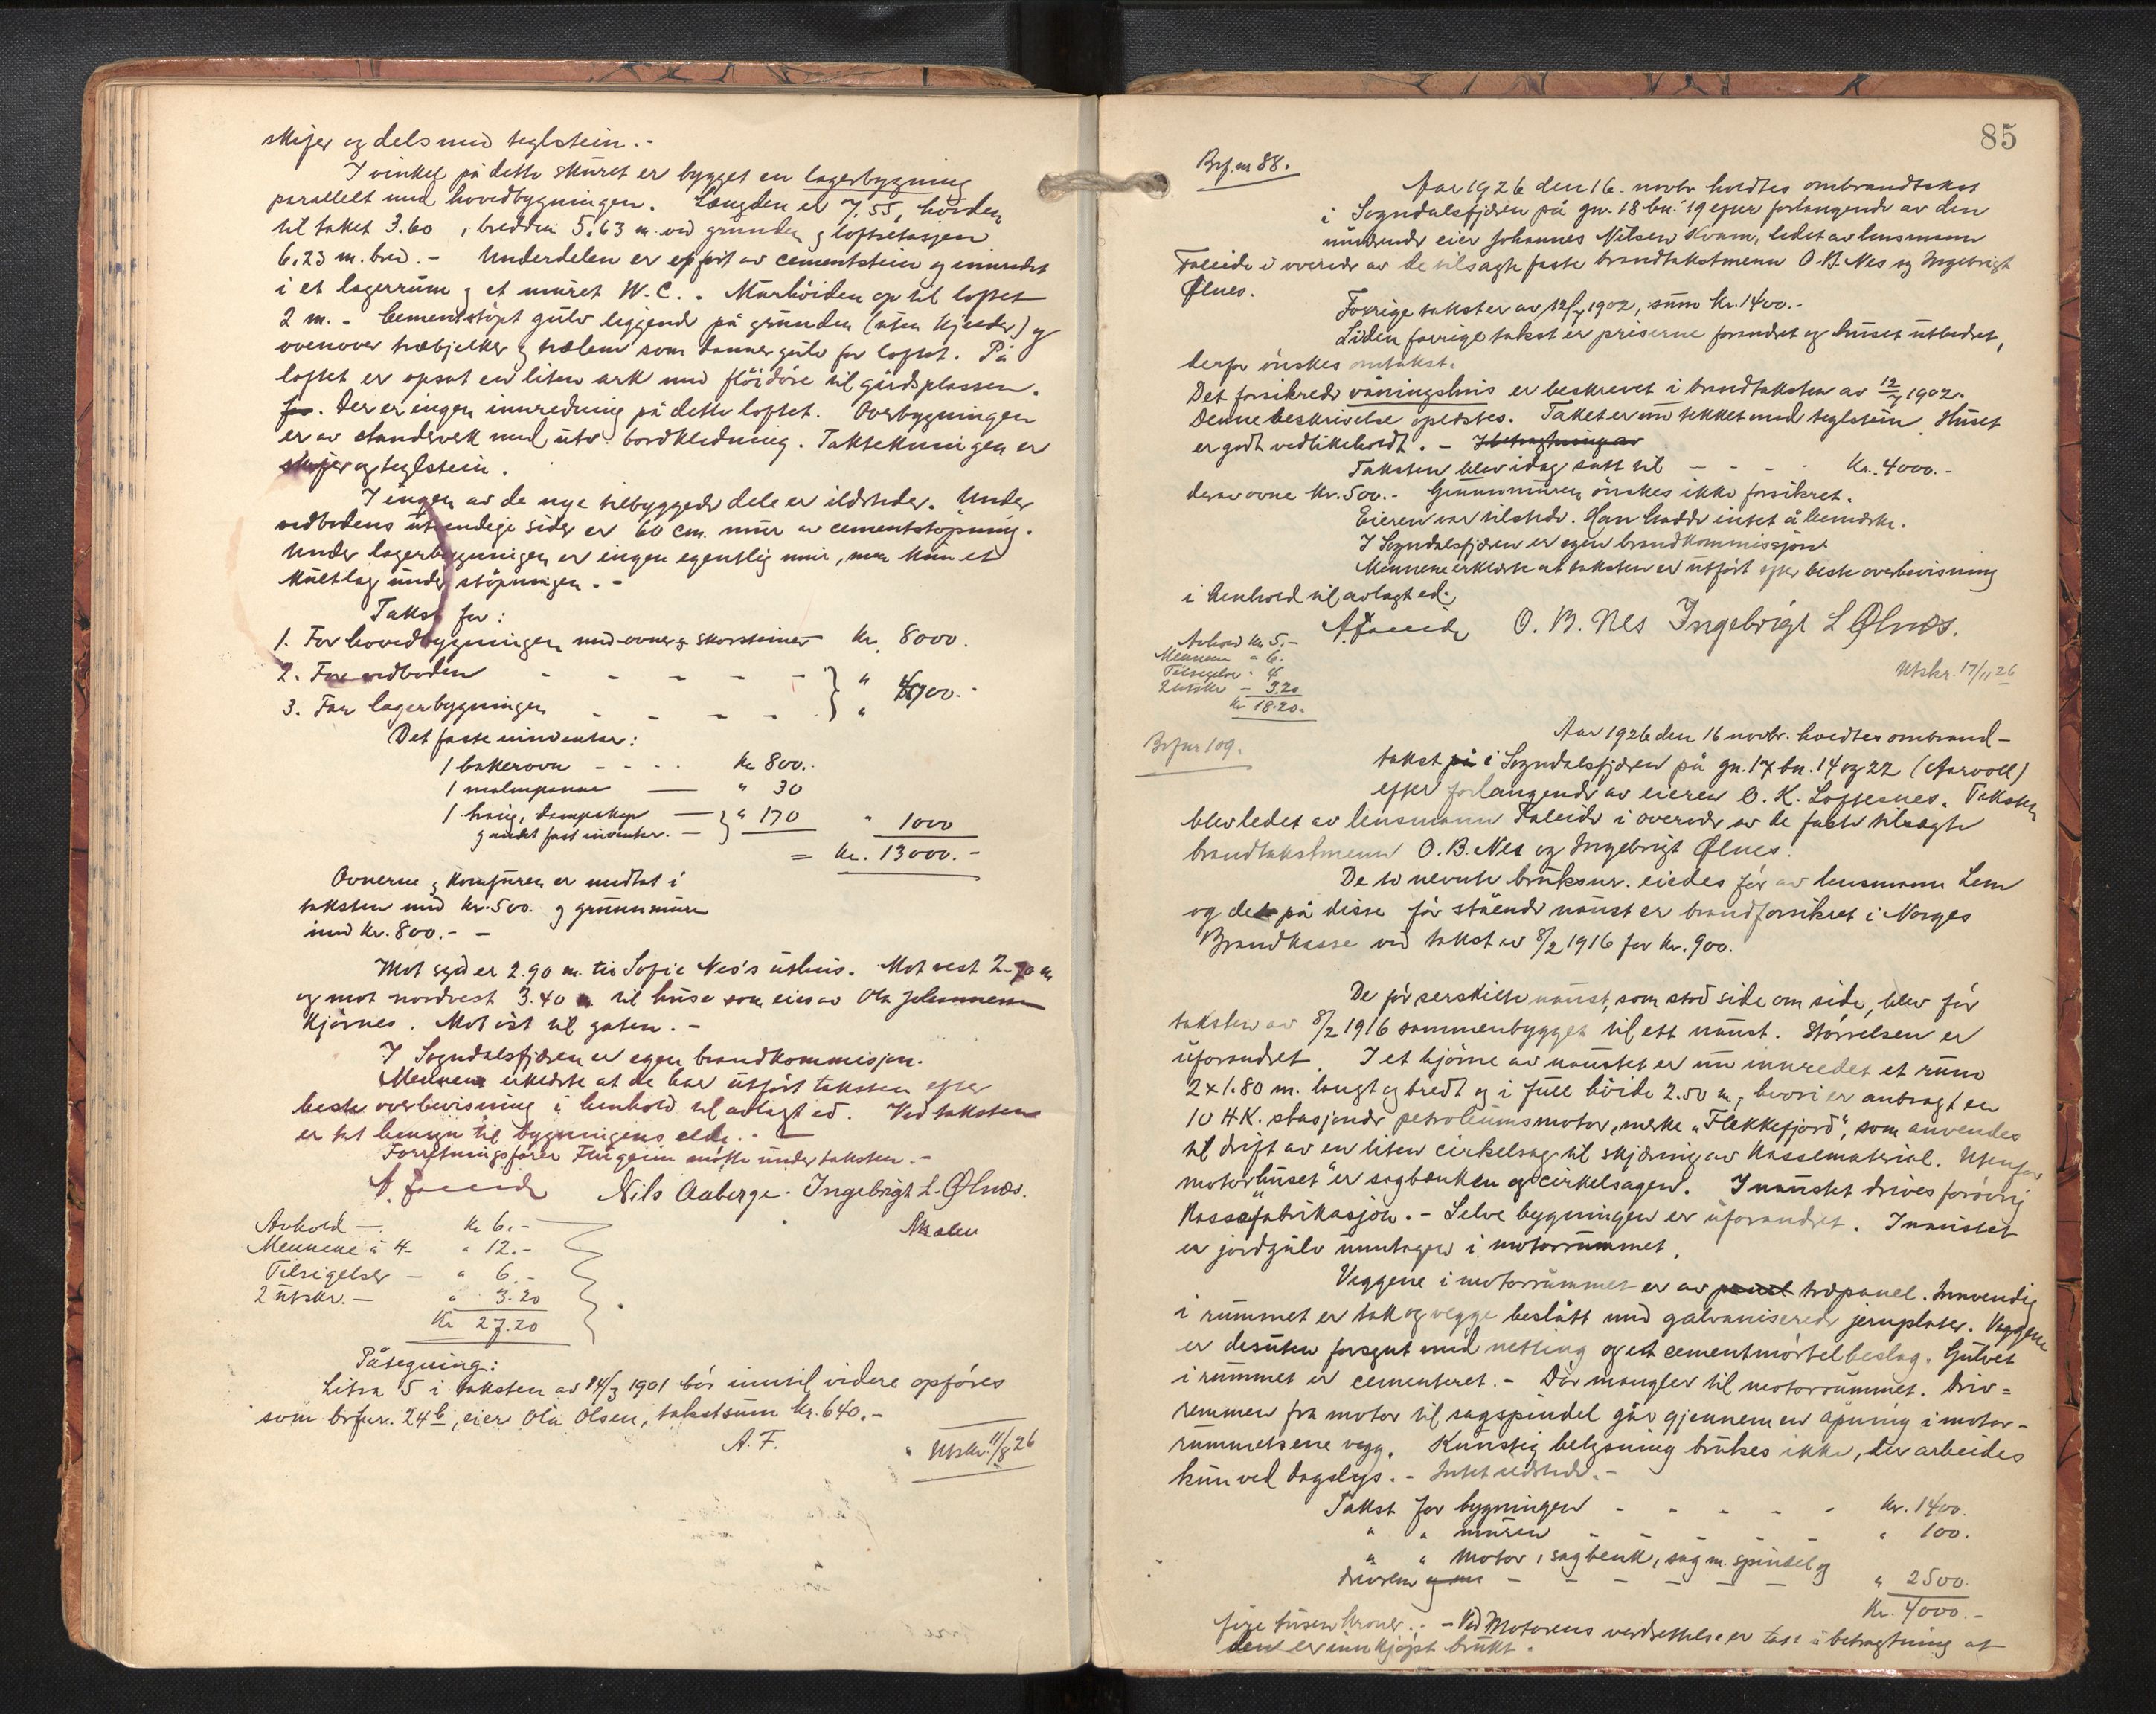 skifer og dels med teglstein.-
I vinkel på dette skuret er bygget en lagerbygning
parallelt med hovedbygningen. Længden er 7.55, höiden
til taket 3.60, bredden 5.63 m. ved grunden og loftsetasjen
6.23 m. bred.- Underdelen er opfört av cementstein og innredet
i et lagerrum og et muret W.C.. Murhöiden op til loftet
2 m.- Cementstöpt gulv liggende på grunden (uten kjelder) og
ovenover træbjelker og trælem som danner gulv for loftet. På
loftet er opsat en liten ark med flöidöre til gårdsplassen.
Der er ingen innredning på dette loftet. Overbygningen
er av standverk med utv. bordklædning. Taktekningen er
skifer og teglstein.
I ingen av de nye tilbyggede dele er ildsteder. Under
vedbodens utvendige sider er 60 cm. mur av cementstöpning.
Under lagerbygningen er ingen egentlig mur, men kun et
kultlag under stöpningen.-
Takst for:
1. For hovedbygningen med ovner og skorsteiner Kr. 8000.
2. For vedboden - - - - - } "
3. For lagerbygningen - - - - } " 4000.-
Det faste inventar:
1 bakerovn - - - - Kr 800.-
1 malmpanne — " 30
1 hævig, dampskap —
og andet fast inventar. — } " 170 " 1000
= Kr. 13000.-
Ovnerne og komfuren er medtat i
taksten med kr. 500. og grunnmuren
med kr. 800.-
Mot syd er 2.90 m. til Sofie Nes's uthus. Mot vest 2.70 m
og mot nordvest 3.40 m til huse som eies av Ola Johannesen
Kjörnes. Mot öst til gaten.-
I Sogndalsfjæren er egen brandkommisjon.
Mennene erklærte at de har utfört taksten efter
beste overbevisning i henhold til avlagt ed. Ved taksten
er tat hensyn til bygningens elde.-
Forretningsförer møtte under taksten.-
A. Faleide Nils Aaberge. Ingebrigt L. Ølnes.
Avhold — Kr 6.-
Mennene á 4- " 12.-
Tilsigelser — " 6.-
2 utskr. — " 3.20
Kr 27.20
Påtegning:
Litra 5 i taksten av 14/3 1901 bör inntil videre opföres
som brfnr. 24b, eier Ola Olsen, takstsum kr. 640.-
A. F.
Utskr. 11/8 26
85
Brf.nr 88.
Aar 1926 den 16. novbr. holdtes ombrandtakst
i Sogndalsfjæren på gn. 18 bn. 19 efter forlangende av den
nuværende eier Johannes Nilsen Kvam, ledet av lensmann
Faleide i overvær av de tilsagte faste brandtakstmenn O. B. Nes og Ingebrigt
Ølnes.
Forrige takst er av 12/7 1902, sum kr. 1400.-
Siden forrige takst er priserne forandret og huset utbedret,
derfor önskes omtakst.
Det forsikrede våningshus er beskrevet i brandtaksten av 12/7 1902.
Denne beskrivelse oplæstes. Taket er nu tekket med teglstein. Huset
er godt vedlikeholdt.- I betragtning av
Taksten blev idag satt til - - - - Kr. 4000.-
derav ovne kr. 500.- Grunnmuren önskes ikke forsikret.
Eieren var tilstede. Han hadde intet å bemerke.
I Sogndalsfjæren er egen brandkommissjon.
Mennene erklærte at taksten er utfört efter beste overbevisning
i henhold til avlagt ed.
A. Faleide O. B. Nes Ingebrigt L Ølnes.
Avhold kr 5.-
Mennene " 6.
Tilsigelser " 4
2 utskr - 3.20
Kr 18.20.
Utskr. 17/11 26
Brfnr 109.
Aar 1926 den 16 novbr. holdtes ombrand-
takst på i Sogndalsfjæren på gn. 17 bn. 14 og 22 (Aarvoll)
efter forlangende av eieren O. K. Loftesnes. Taksten
blev ledet av lensmann Faleide i overvær av de faste tilsagte
brandtakstmenn O. B. Nes og Ingebrigt Ølnes.
De to nevnte bruksnr. eiedes för av lensmann Lem
og det på disse för stående naust er brandforsikret i Norges
Brandkasse ved takst av 8/2 1916 for kr. 900.
De för serskilte naust, som stod side om side, blev för
taksten av 8/2 1916 sammenbygget til ett naust. Störrelsen er
uforandret. I et hjörne av naustet er nu innredet et rum
2 x 1.80 m. langt og bredt og i full höide 2.50 m, hvori er anbragt en
10 HK. stasjonær petroleumsmotor, merke "Flekkefjord", som anvendes
til drift av en liten cirkelsag til skjæring av kassemateriale. Utenfor
"motorhuset" er sagbænken og cirkelsagen. I naustet drives forövrig
kassefabrikasjon.- Selve bygningen er uforandret. I naustet
er jordgulv unntagen i motorrummet.
Veggene i motorrummet er av panel træpanel. Innvendig
i rummet er tak og vegge beslått med galvaniserede jernplater. Veggene
er desuten forsynt med netting og et cementmörtelbeslag. Gulvet
i rummet er cementeret.- Dör mangler til motorrummet. Driv=
remmen fra motor til sagspindel går gjennem en åpning i motor-
rummets ene vegg. Kunstig belysning brukes ikke, der arbeides
kun ved dagslys.- Intet ildsted.-
Takst for bygningen - - - - - Kr. 1400.
" " muren - - - - - " 100.
" " motor, sagbenk, sag m. spindel og
drivrem og - - - - - - " 2500.
Kr. 4000.-
fire tusen kroner.- Ved Motorens verdsettelse er tatt i betragtning at
den er innkjöpt brukt.